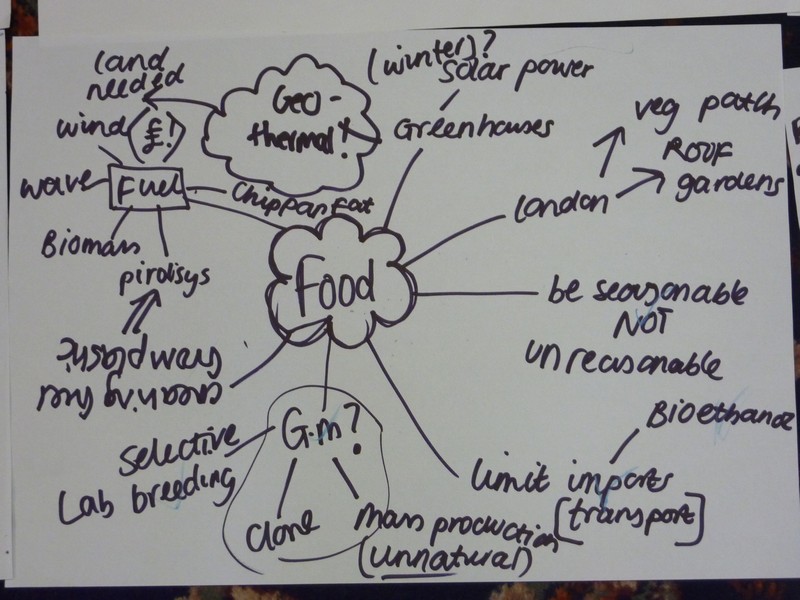 land
needed
wind (£!)
wave
Fuel
Chippan fat
Biomass
pirolisys
creating fuel
from plastic?
Geo-
thermal!
(winter)?
Solar power
Greenhouses
London
veg patch
Roof
gardens
Food
be seasonable
NOT
unreasonable
Bioethanol
limit imports
[transport]
G.m?
Selective
Lab breeding
Clone
Mass production
(unnatural)